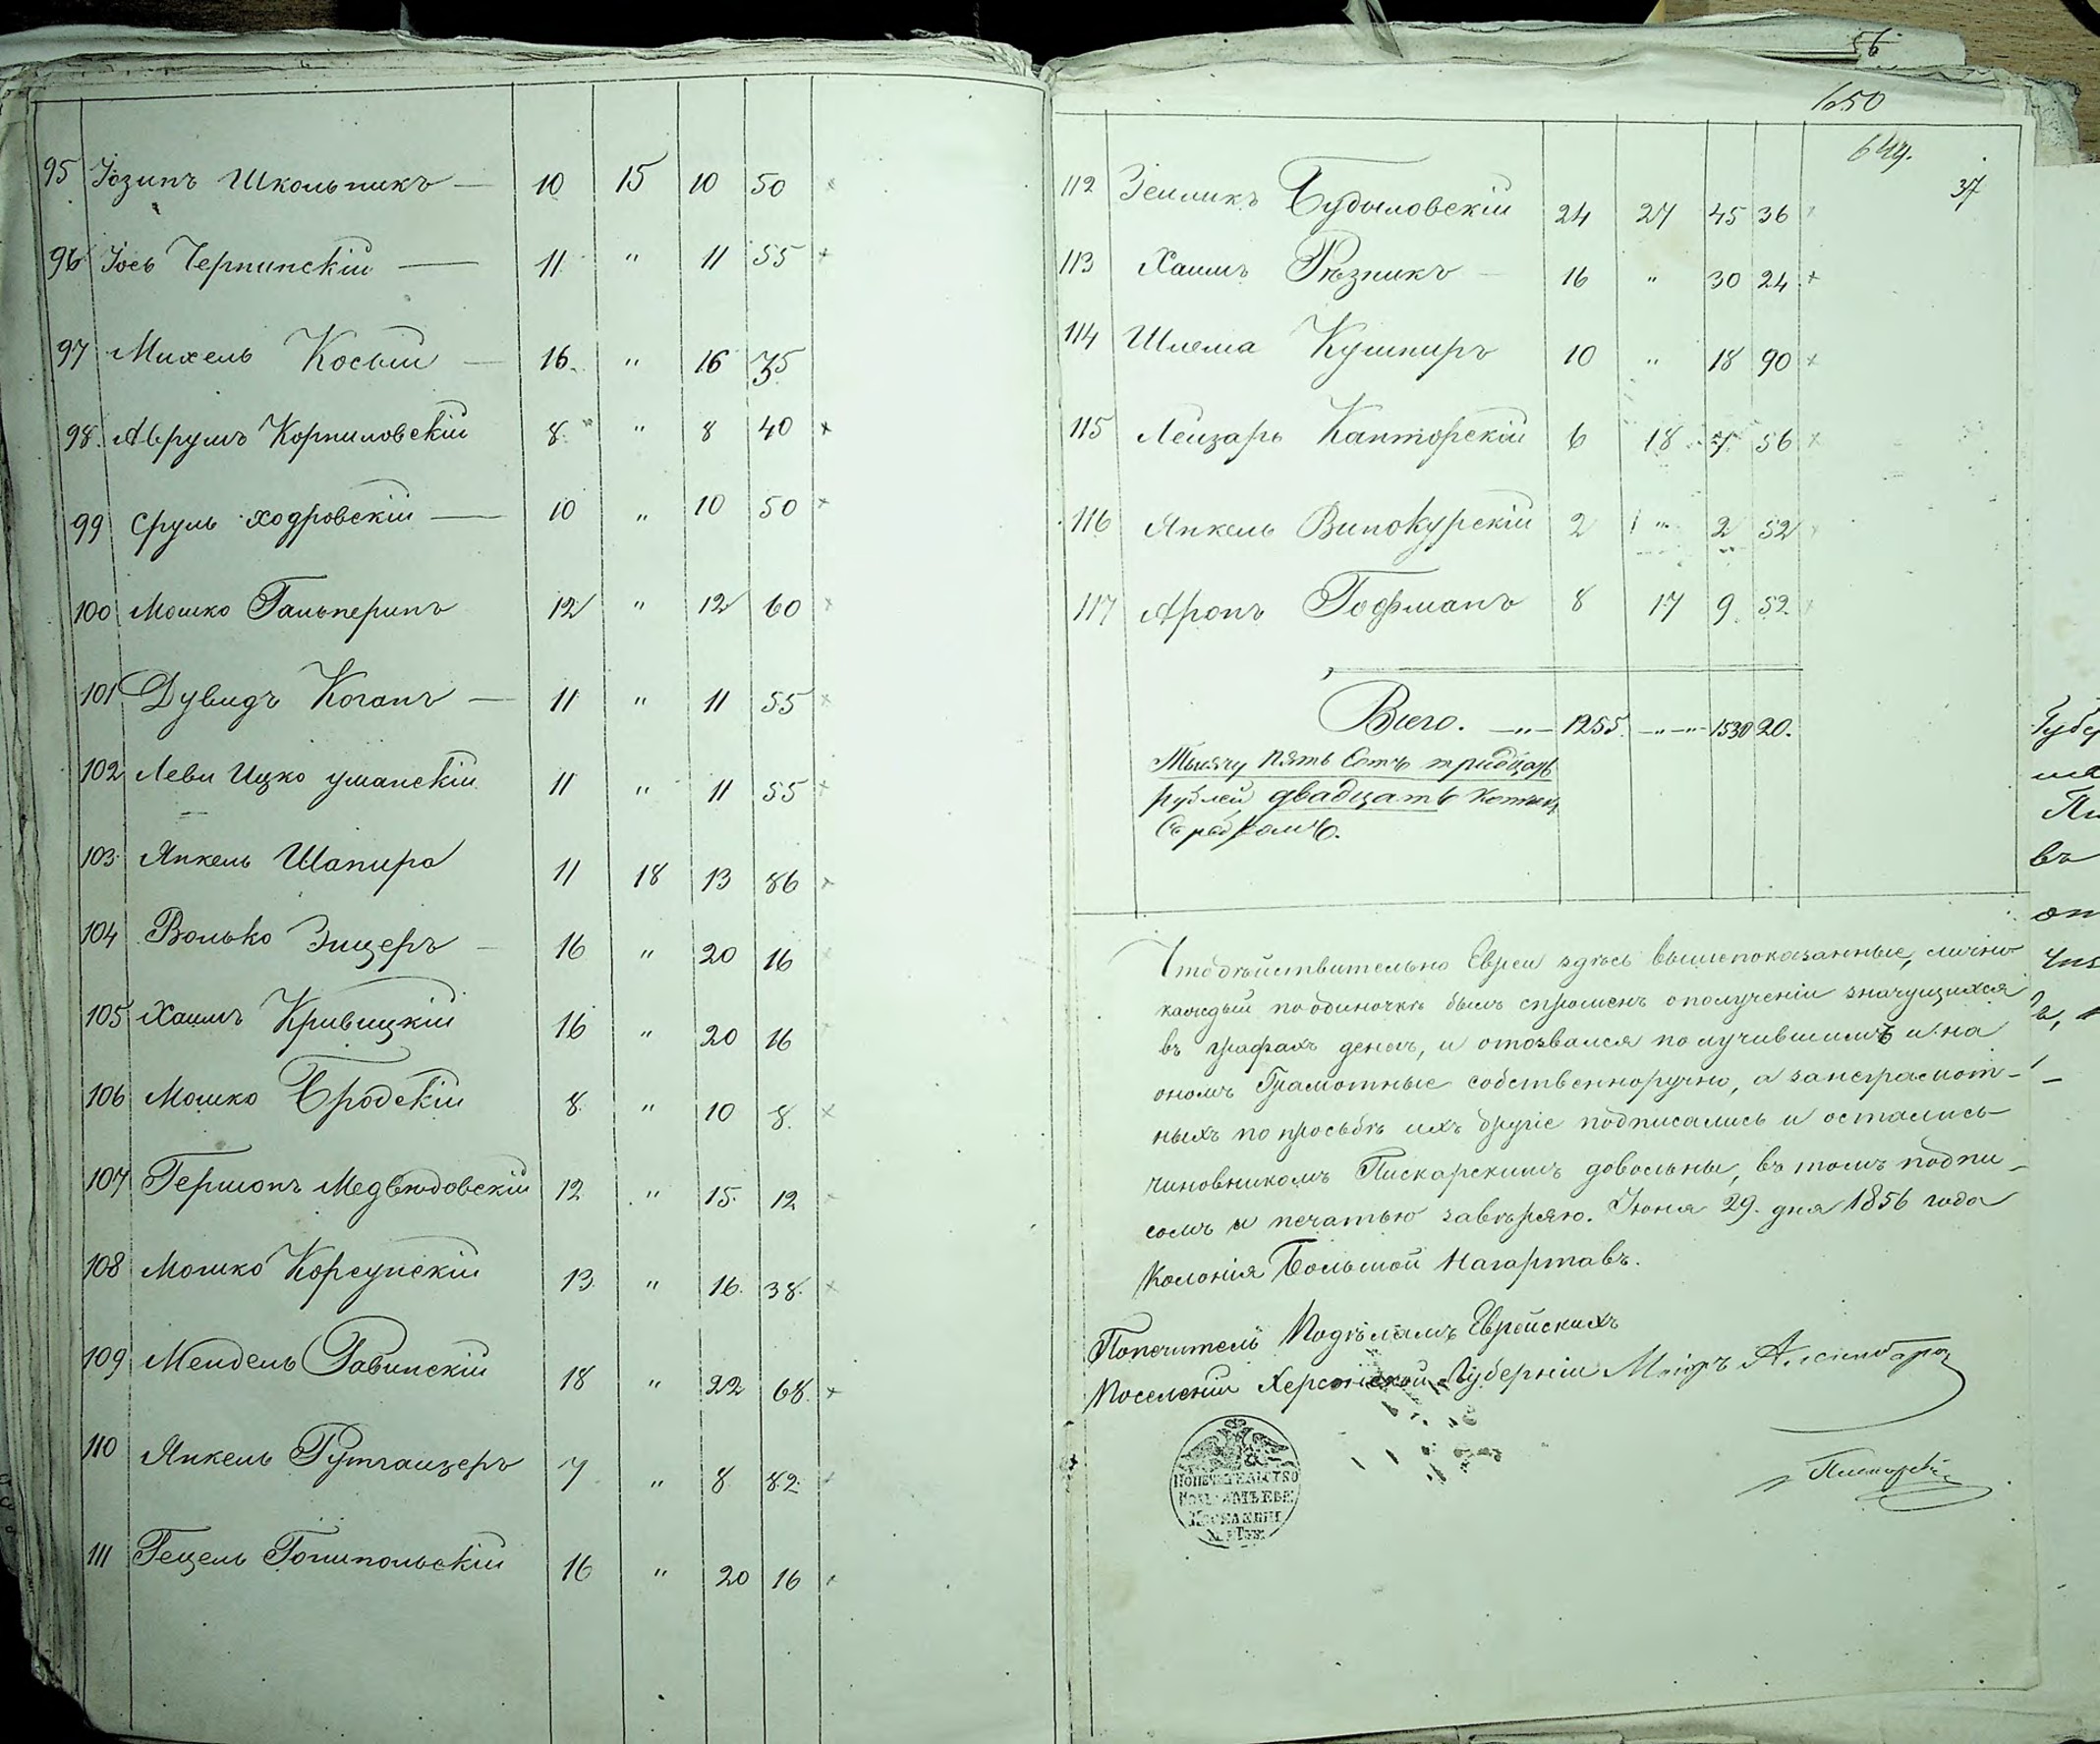 95 Іозипъ Школьникъ — 10 15 10 50 ×
96 Іось Чернинскій — 11 " 11 55 +
97 Михель Косый — 16. " 16 75
98. Аврумъ Корниловскій 8. " 8 40 ×
99 Сруль Ходровскій — 10 " 10 50 ×
100 Мошко Гальперинъ 12 " 12 60 ×
101 Дувидъ Коганъ — 11 " 11 55 ×
102 Леви Ицко уманскій 11 " 11 55 ×
103. Янкель Шапиро 11 18 13 86 ×
104 Волько Зицеръ — 16 " 20 16
105 Хаимъ Кривицкій 16 " 20 16
106 Мошко Бродскій 8. " 10 8. ×
107 Гершонъ Медвѣдовскій 12 " 15. 12 ×
108 Мошко Корсунскій 13. " 16. 38. ×
109 Мендель Равинскій 18 " 22 68. ×
110 Янкель Рутгайзеръ 7 " 8 82.
111 Гецель Гошпольскій 16 " 20 16
56
650
649.
37
112 Зеиликъ Будыловскій 24 27 45 36 ×
113 Хаимъ Рѣзникъ — 16 " 30 24. +
114 Шлема Кушниръ 10 " 18 90 ×
115 Лейзаръ Канторскій 6 18 7 56 ×
116 Янкель Винокурскій 2 " 2 52
117 Аронъ Гофманъ 8 17 9 52
Всего. —"— 1255. —"—"— 1530 20.
Тысячу пять Сотъ тридцать
рублей двадцать копѣекъ
Серебромъ.
Что дѣйствительно Евреи здѣсь вышепоказанные, лично
каждый по одиночкѣ былъ спрошенъ о полученіи значущихся
въ графахъ денегъ, и отозвался получившимъ и на
ономъ Грамотные собственноручно, а за неграмот-
ныхъ по просьбѣ ихъ другіе подписались и остались
чиновникомъ Пискарскимъ довольны, въ томъ подпи-
сомъ и печатью завѣряю. Іюня 29. дня 1856 года
Колонія Большой Нагартавъ.
Попечитель Подѣламъ Еврейскихъ
Поселеній Херсонской Губерніи Маіоръ
Пискарскій
ПОПЕЧИТЕЛЬСТВО
ПОСЕЛЕНІЙ